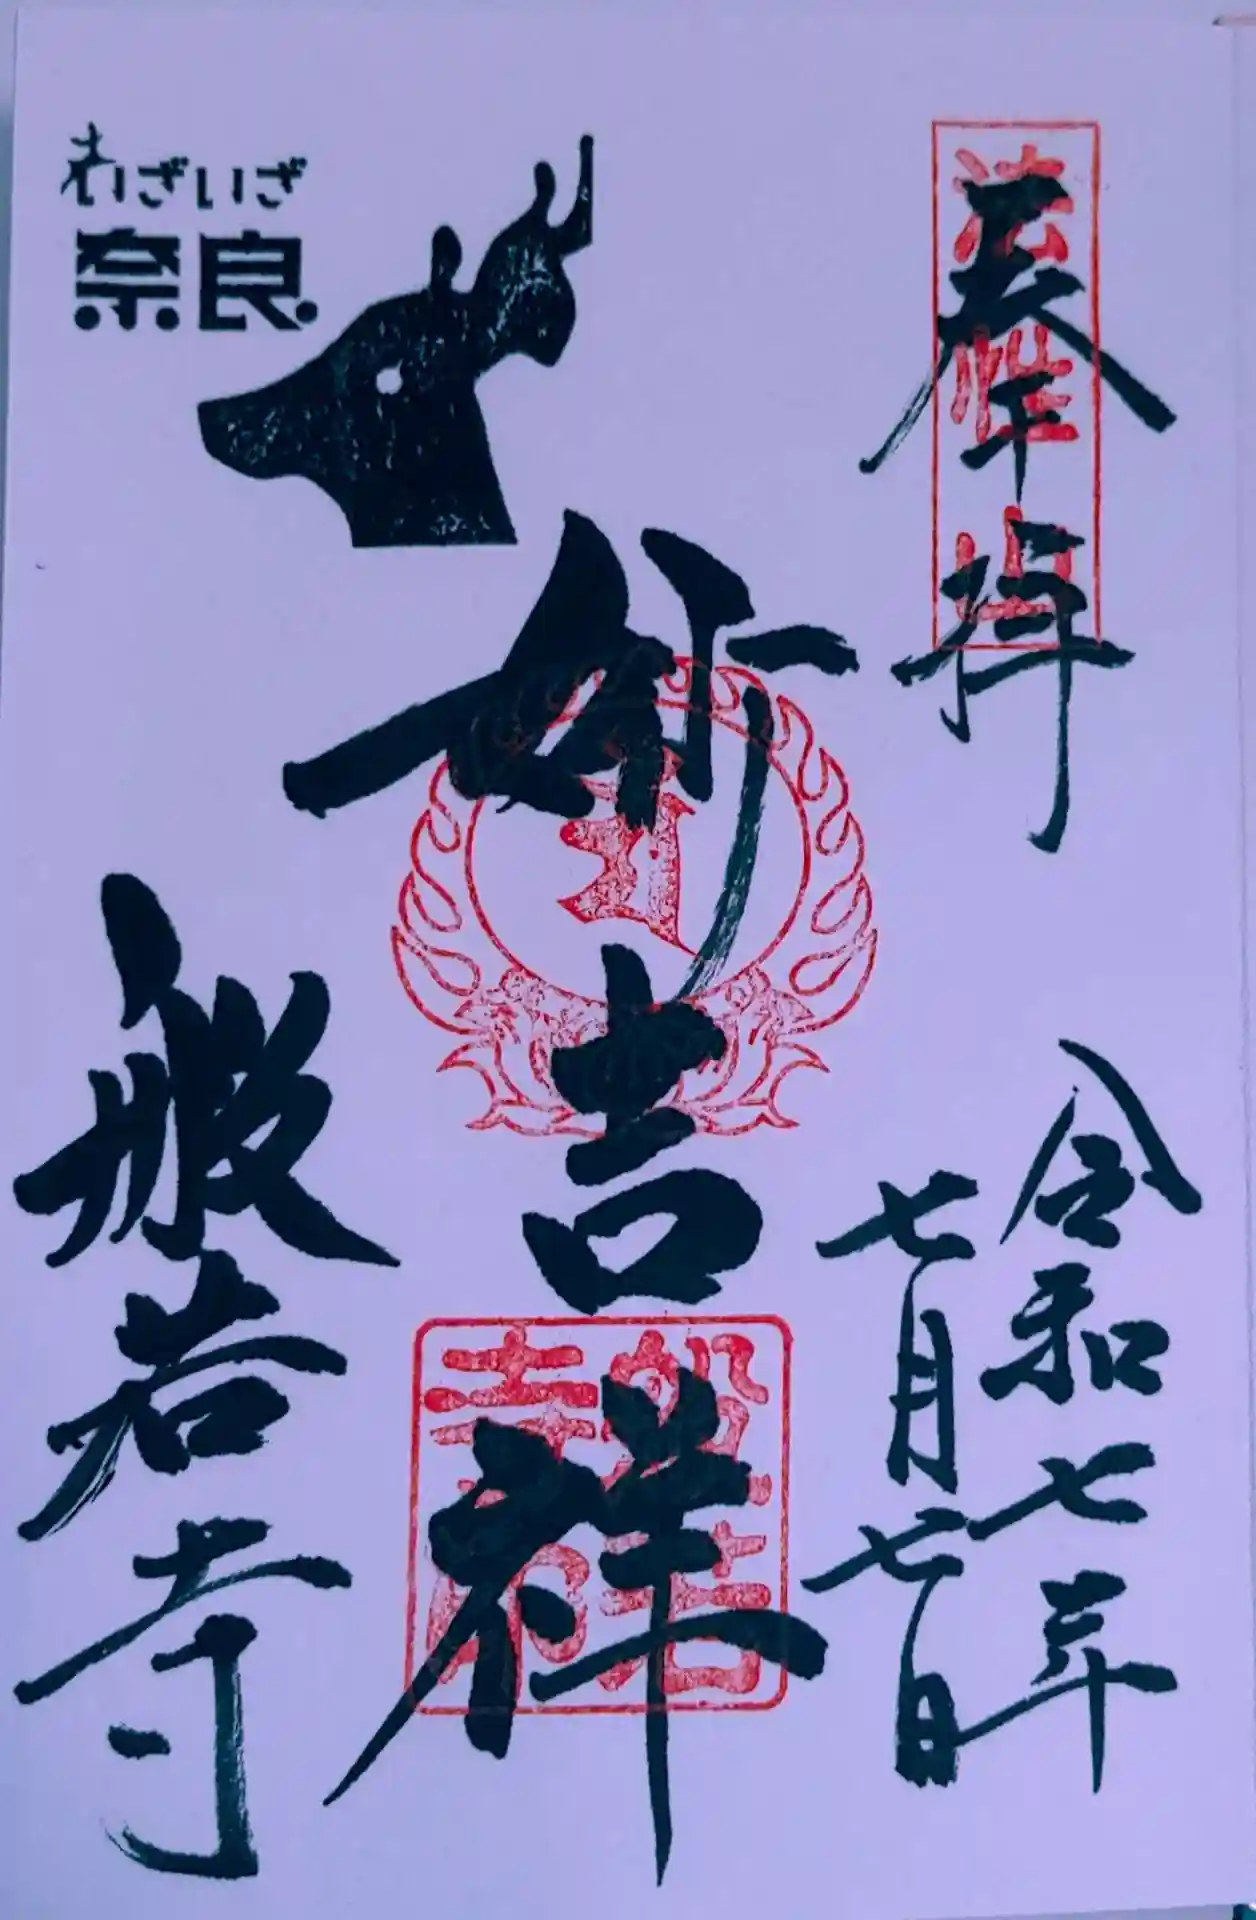 奉拝
法性山
令和七年
七月七日
妙吉祥
般若寺
般若寺
わざいざ
奈良